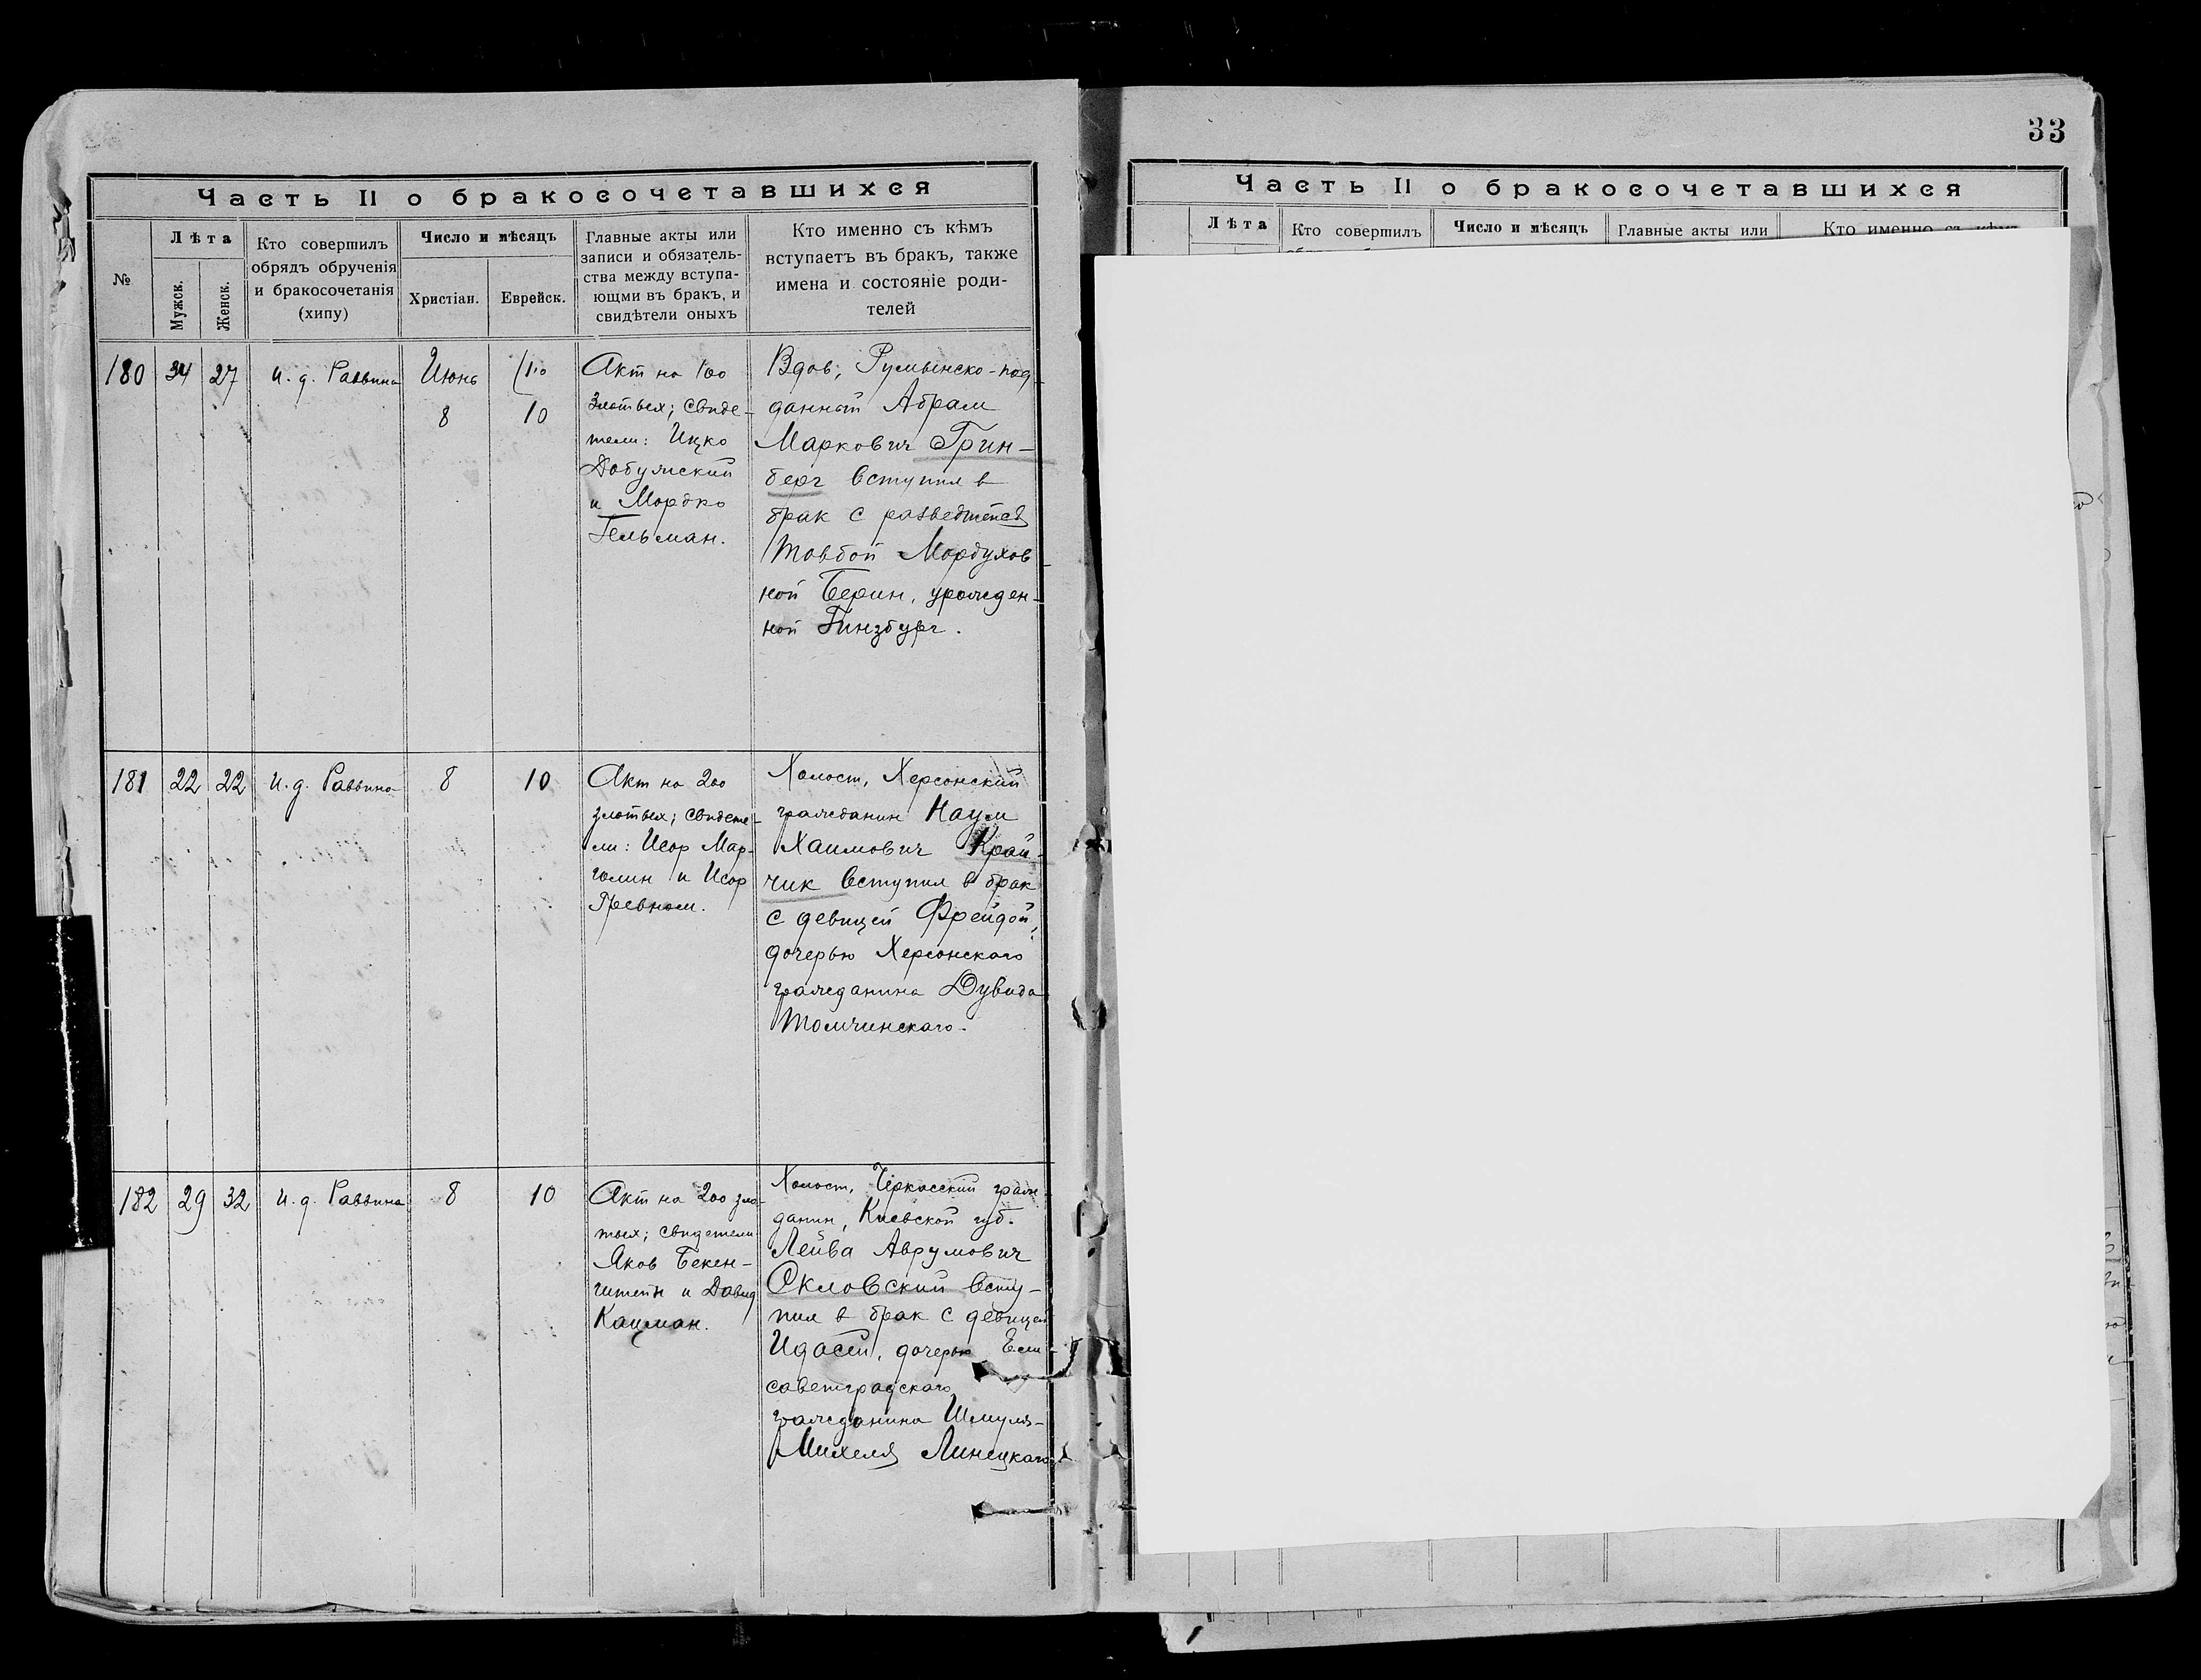 33
Часть II о бракосочетавшихся
№
Лѣта
Мужск.
Женск.
Кто совершилъ
обрядъ обрученія
и бракосочетанія
(хипу)
Число и мѣсяцъ
Христіан.
Еврейск.
Главные акты или
записи и обязатель-
ства между вступа-
ющми въ брак, и
свидѣтели оныхъ
Кто именно съ кѣмъ
вступаетъ въ бракъ, также
имена и состояніе роди-
телей
180
34
27
и. д. Раввина
Июнь
8
10
Акт на 100
злотых; свиде-
тели: Ицко
и Мордко
Гельман.
Вдов, Румынско-под-
данный Абрам
Маркович Грин-
берг вступил в
брак с разведенной
Товбой Мордухов-
ной Берин, урожден-
ной Гинзбург.
181
22
22
и. д. Раввина
8
10
Акт на 200
злотых; свидете-
ли: Исор Мар-
голин и Исор
Холост, Херсонский
гражданин Наум
Хаимович Край-
чик вступил в брак
с девицей Фрейдой,
дочерью Херсонскаго
гражданина Дувида
Томчинскаго.
182
29
32
и. д. Раввина
8
10
Акт на 200 зло-
тых; свидетели
Яков Бекен-
штейн и Давид
Кацман.
Холост, Черкасский граж-
данин, Киевской губ.
Лейва Аврумович
Скловский всту-
пил в брак с девицей
Идасей, дочерью Ели-
саветградскаго
гражданина Шмуля-
Михеля Линецкаго
Часть II о бракосочетавшихся
Лѣта
Кто совершилъ
Число и мѣсяцъ
Главные акты или
Кто именно съ кѣмъ